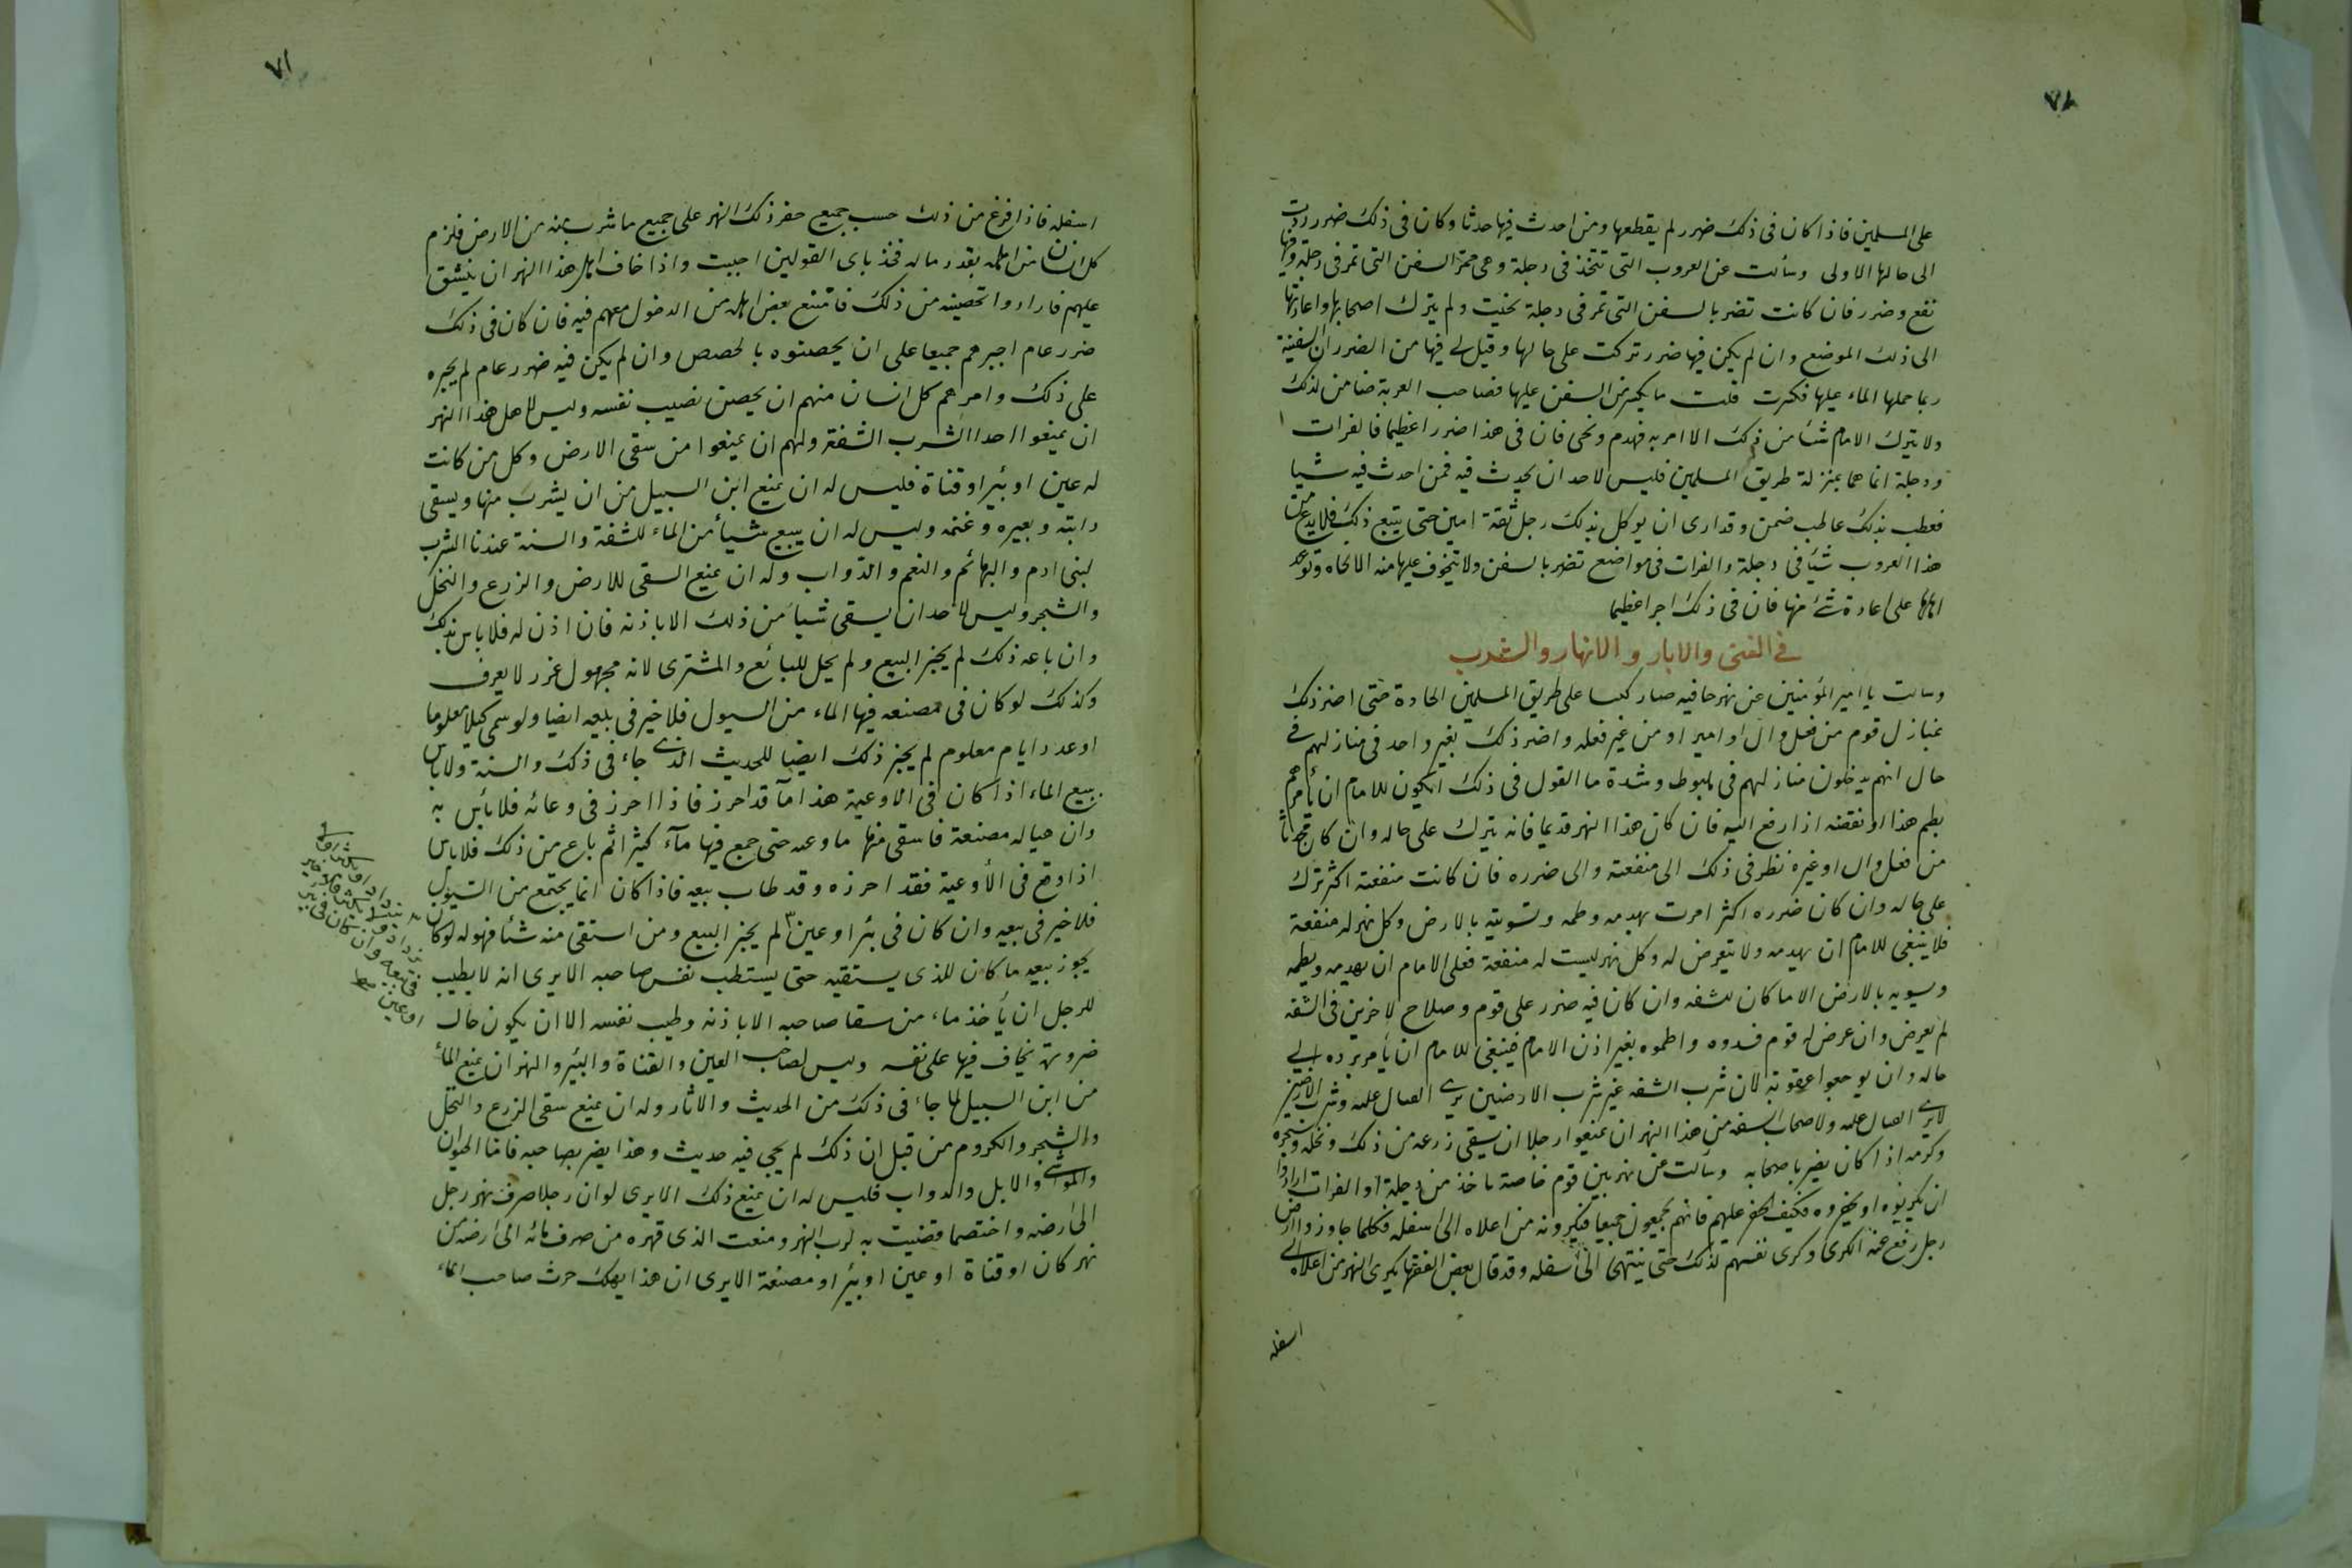 ٧٨
على المسلمين فاذا كان فى ذلك ضرر لم يقطعها ومن احدث فيها حدثا وكان فى ذلك ضرر ردت
الى حالها الاولى وسألت عن العروب التى تتخذ فى دجلة وهى ممر السفن التى تمر فى دجلة وفيها
نفع وضرر فان كانت تضر بالسفن التى تمر فى دجلة نحيت ولم يترك اصحابها واعادتها
الى ذلك الموضع وان لم يكن فيها ضرر تركت على حالها وقيل لى فيها من الضرر ان السفينة
ربما حملها الماء عليها فكسرت قلت ما يكسر من السفن عليها فصاحب العربة ضامن لذلك
ولا يترك الامام شئا من ذلك الا امر به فهدم ونحى فان فى هذا ضررا عظيما فالفرات
ودجلة انما هما بمنزلة طريق المسلمين فليس لاحد ان يحدث فيه فمن احدث فيه شيا
فعطب بذلك عاطب ضمن وقد ارى ان يوكل بذلك رجل ثقة امين حتى يتبع ذلك فلا يدع من
هذا العروب شئا فى دجلة والفرات فى مواضع تضر بالسفن ولا يتخوف عليها منه الا نحاه وتوعد
اهلها على اعادة شئ منها فان فى ذلك اجرا عظيما
فى القنى والابار والانهار والشرب
وسالت يا امير المؤمنين عن نهر حافيه صار كبسا على طريق المسلمين الحادة حتى اضر ذلك
بمنازل قوم من فعل وال او امير او من غير فعله واضر ذلك بغير واحد فى منازلهم فى
حال انهم يدخلون منازلهم فى هبوط وشدة ما القول فى ذلك ايكون للامام ان يأمرهم
بطم هذا او نقضه اذا رفع اليه فان كان هذا النهر قديما فانه يترك على حاله وان كان محدثا
من فعل وال او غيره نظر فى ذلك الى منفعته والى ضرره فان كانت منفعته اكثر ترك
على حاله وان كان ضرره اكثر امرت بهدمه وطمه وتسويته بالارض وكل نهر له منفعة
فلا ينبغى للامام ان يهدمه ولا يتعرض له وكل نهر ليست له منفعة فعلى الامام ان يهدمه ويطمه
ويسويه بالارض الا ما كان للشفه وان كان فيه ضرر على قوم وصلاح لاخرين فى الشفه
لم يعرض وان عرض له قوم فسدوه واطموه بغير اذن الامام فينبغى للامام ان يأمر برده الى
حاله وان يوجعوا عقوبة لان شرب الشفه غير شرب الارضين يرى القتال عليه وشرب الارضين
لا يرى القتال عليه ولاصحاب الشفه من هذا النهر ان يمنعوا رجلا ان يسقى زرعه من ذلك ونخله وشجره
وكرمه اذا كان يضر باصحابه وسألت عن نهر بين قوم خاصة ياخذ من دجلة او الفرات ارادوا
ان يكريوه او يحفروه فكيف الحفر عليهم فانهم يجمعون جميعا فيكرونه من اعلاه الى اسفله فكلما جاوزوا ارض
رجل رفع عنه الكرى وكرى نفسهم لذلك حتى ينتهى الى اسفله وقد قال بعض الفقها يكرى النهر من اعلاه الى
اسفله
٧١
اسفله فاذا فرغ من ذلك حسب جميع حفر ذلك النهر على جميع ما شرب منه من الارض فلزم
كل انسان من اهله بقدر ماله فخذ باى القولين احببت واذا خاف اهل هذا النهر ان ينشق
عليهم فارادوا تحصينه من ذلك فامتنع بعض اهله من الدخول معهم فيه فان كان فى ذلك
ضرر عام اجبرهم جميعا على ان يحصنوه بالحصص وان لم يكن فيه ضرر عام لم يجبره
على ذلك وامرهم كل انسان منهم ان يحصن نصيب نفسه وليس لاهل هذا النهر
ان يمنعوا احدا الشرب الشفة ولهم ان يمنعوا من سقى الارض وكل من كانت
له عين او بئر او قناة فليس له ان يمنع ابن السبيل من ان يشرب منها ويسقى
دابته وبعيره وغنمه وليس له ان يبيع شيأ من الماء للشفة والسنة عندنا الشرب
لبنى ادم والبهائم والنعم والدواب وله ان يمنع السقى للارض والزرع والنخل
والشجر وليس لاحد ان يسقى شيأ من ذلك الا باذنه فان اذن له فلا باس بذلك
وان باعه ذلك لم يجز البيع ولم يحل للبائع والمشترى لانه مجهول غرر لا يعرف
وكذلك لو كان فى مصنعه فيها الماء من السيول فلا خير فى بيعه ايضا ولو سمى كيلا معلوما
او عدد ايام معلوم لم يجز ذلك ايضا للحديث الذى جاء فى ذلك والسنة ولا باس
ببيع الماء اذا كان فى الاوعية هذا مآ قد احرز فاذا احرز فى وعائه فلا بأس به
وان هيا له مصنعة فاستقى منها ماوعه حتى جمع فيها مآء كثيرا ثم باع من ذلك فلا باس
اذا وقع فى الأوعية فقد احرزه وقد طاب بيعه فاذا كان انما يجتمع من السيول
فلا خير فى بيعه وان كان فى بئر او عين لم يجز البيع ومن استقى منه شئا فهو له لو كان
يجوز بيعه ما كان للذى يستقيه حتى يستطب نفس صاحبه الا يرى انه لا يطيب
للرجل ان يأخذ ماء من سقا صاحبه الا باذنه وطيب نفسه الا ان يكون حال
ضرورة يخاف فيها على نفسه وليس لصاحب العين والقناة والبئر والنهر ان يمنع الماء
من ابن السبيل لما جاء فى ذلك من الحديث والاثار وله ان يمنع سقى الزرع والنخل
والشجر والكروم من قبل ان ذلك لم يجى فيه حديث وهذا يضر بصاحبه فاما الحيوان
والمواشى والابل والدواب فليس له ان يمنع ذلك الا يرى لو ان رجلا صرف نهر رجل
الى ارضه واختصما قضيت به لرب النهر ومنعت الذى قهره من صرف مائه الى ارضه من
نهر كان او قناة او عين او بئر او مصنعة الا يرى ان هذا يهلك حرث صاحب الماء
فى بيعه وان كان فى بئر
او عين